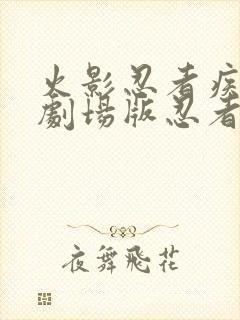 火影忍者疾
劇場版忍者
夜舞飛花